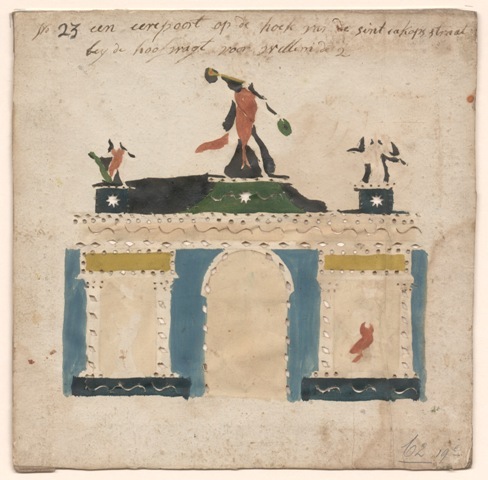 N 23 een eerepoort op de hoek van de sint jakops straat
bey de hoofwagt voor Willem de 2